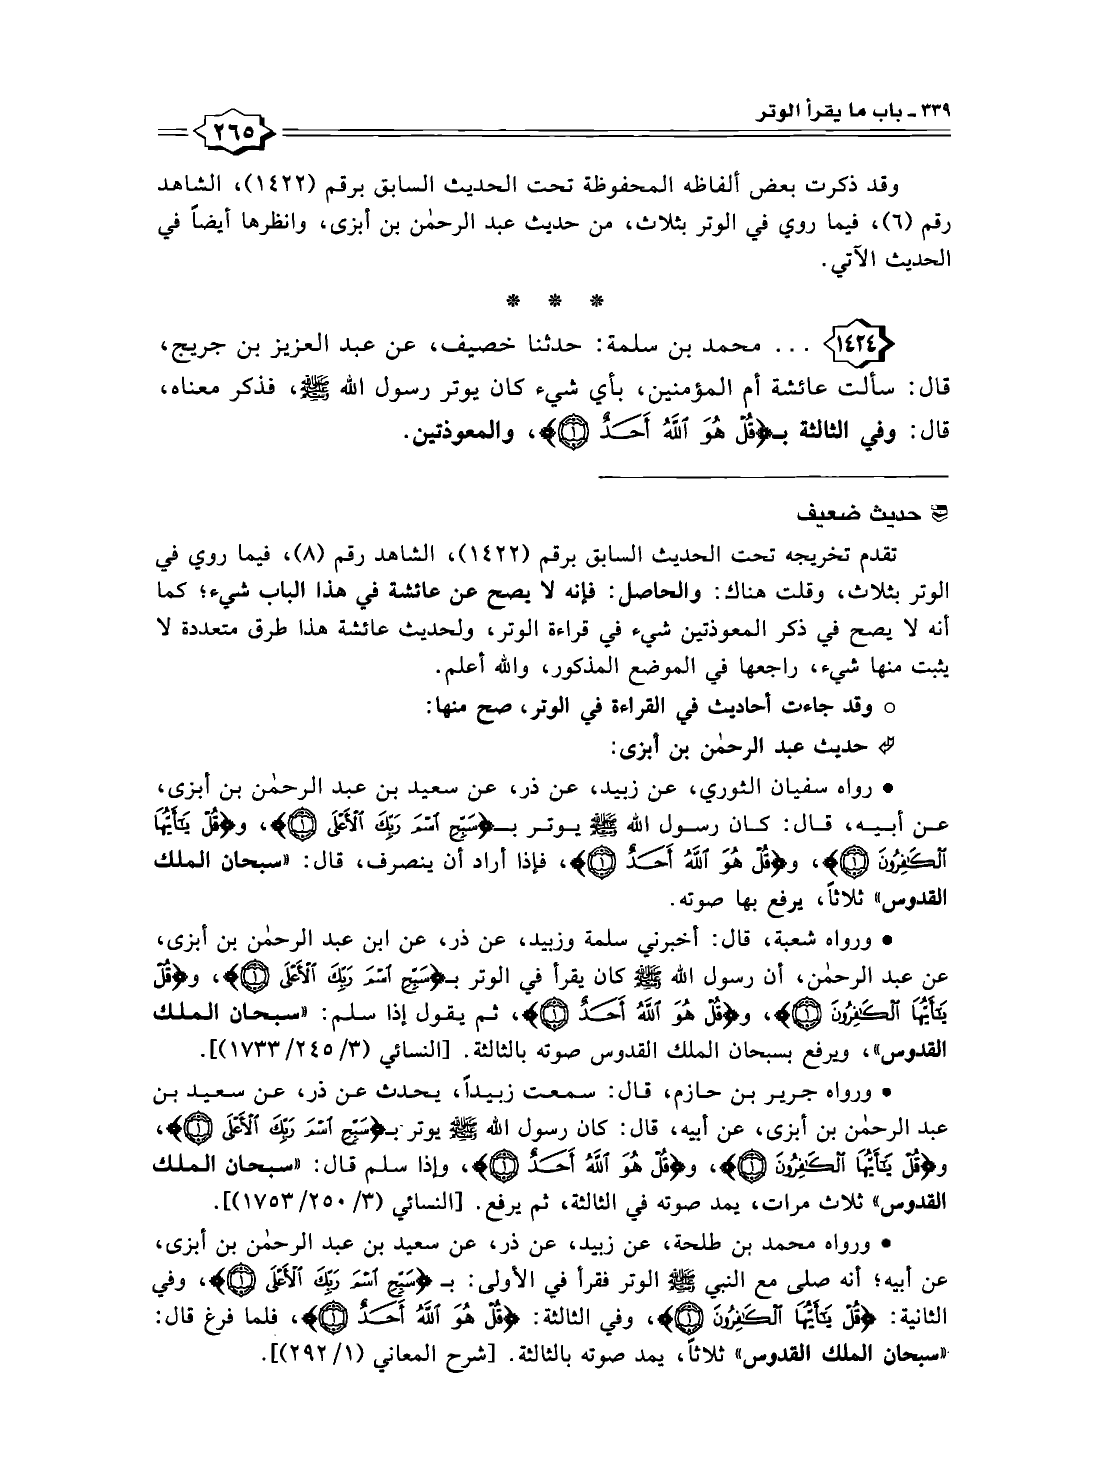 ٣٣٩ ـ باب ما يقرأ الوتر
٢٦٥
وقد ذكرت بعض ألفاظه المحفوظة تحت الحديث السابق برقم (١٤٢٢)، الشاهد
رقم (٦)، فيما روي في الوتر بثلاث، من حديث عبد الرحمٰن بن أبزى، وانظرها أيضاً في
الحديث الآتي.
* * *
١٤٢٤ ... محمد بن سلمة: حدثنا خصيف، عن عبد العزيز بن جريج،
قال: سألت عائشة أم المؤمنين، بأي شيء كان يوتر رسول الله ﷺ، فذكر معناه،
قال: وفي الثالثة بـ﴿قُلْ هُوَ ٱللَّهُ أَحَـدٌ ۝١﴾، والمعوذتين.
حديث ضعيف
تقدم تخريجه تحت الحديث السابق برقم (١٤٢٢)، الشاهد رقم (٨)، فيما روي في
الوتر بثلاث، وقلت هناك: والحاصل: فإنه لا يصح عن عائشة في هذا الباب شيء؛ كما
أنه لا يصح في ذكر المعوذتين شيء في قراءة الوتر، ولحديث عائشة هذا طرق متعددة لا
يثبت منها شيء، راجعها في الموضع المذكور، والله أعلم.
○ وقد جاءت أحاديث في القراءة في الوتر، صح منها:
حديث عبد الرحمٰن بن أبزى:
• رواه سفيان الثوري، عن زبيد، عن ذر، عن سعيد بن عبد الرحمٰن بن أبزى،
عن أبيه، قال: كان رسول الله ﷺ يوتر بـ﴿سَبِّحِ ٱسْمَ رَبِّكَ ٱلْأَعْلَى ۝١﴾، و﴿قُلْ يَـٰٓأَيُّهَا
ٱلْكَـٰفِرُونَ ۝١﴾، و﴿قُلْ هُوَ ٱللَّهُ أَحَـدٌ ۝١﴾، فإذا أراد أن ينصرف، قال: «سبحان الملك
القدوس» ثلاثاً، يرفع بها صوته.
• ورواه شعبة، قال: أخبرني سلمة وزبيد، عن ذر، عن ابن عبد الرحمٰن بن أبزى،
عن عبد الرحمٰن، أن رسول الله ﷺ كان يقرأ في الوتر بـ﴿سَبِّحِ ٱسْمَ رَبِّكَ ٱلْأَعْلَى ۝١﴾، و﴿قُلْ
يَـٰٓأَيُّهَا ٱلْكَـٰفِرُونَ ۝١﴾، و﴿قُلْ هُوَ ٱللَّهُ أَحَـدٌ ۝١﴾، ثم يقول إذا سلم: «سبحان الملك
القدوس»، ويرفع بسبحان الملك القدوس صوته بالثالثة. [النسائي (٣/ ٢٤٥/ ١٧٣٣)].
• ورواه جرير بن حازم، قال: سمعت زبيداً، يحدث عن ذر، عن سعيد بن
عبد الرحمٰن بن أبزى، عن أبيه، قال: كان رسول الله ﷺ يوتر بـ﴿سَبِّحِ ٱسْمَ رَبِّكَ ٱلْأَعْلَى ۝١﴾،
و﴿قُلْ يَـٰٓأَيُّهَا ٱلْكَـٰفِرُونَ ۝١﴾، و﴿قُلْ هُوَ ٱللَّهُ أَحَـدٌ ۝١﴾، وإذا سلم قال: «سبحان الملك
القدوس» ثلاث مرات، يمد صوته في الثالثة، ثم يرفع. [النسائي (٣/ ٢٥٠/ ١٧٥٣)].
• ورواه محمد بن طلحة، عن زبيد، عن ذر، عن سعيد بن عبد الرحمٰن بن أبزى،
عن أبيه؛ أنه صلى مع النبي ﷺ الوتر فقرأ في الأولى: بـ ﴿سَبِّحِ ٱسْمَ رَبِّكَ ٱلْأَعْلَى ۝١﴾، وفي
الثانية: ﴿قُلْ يَـٰٓأَيُّهَا ٱلْكَـٰفِرُونَ ۝١﴾، وفي الثالثة: ﴿قُلْ هُوَ ٱللَّهُ أَحَـدٌ ۝١﴾، فلما فرغ قال:
«سبحان الملك القدوس» ثلاثاً، يمد صوته بالثالثة. [شرح المعاني (١/ ٢٩٢)].